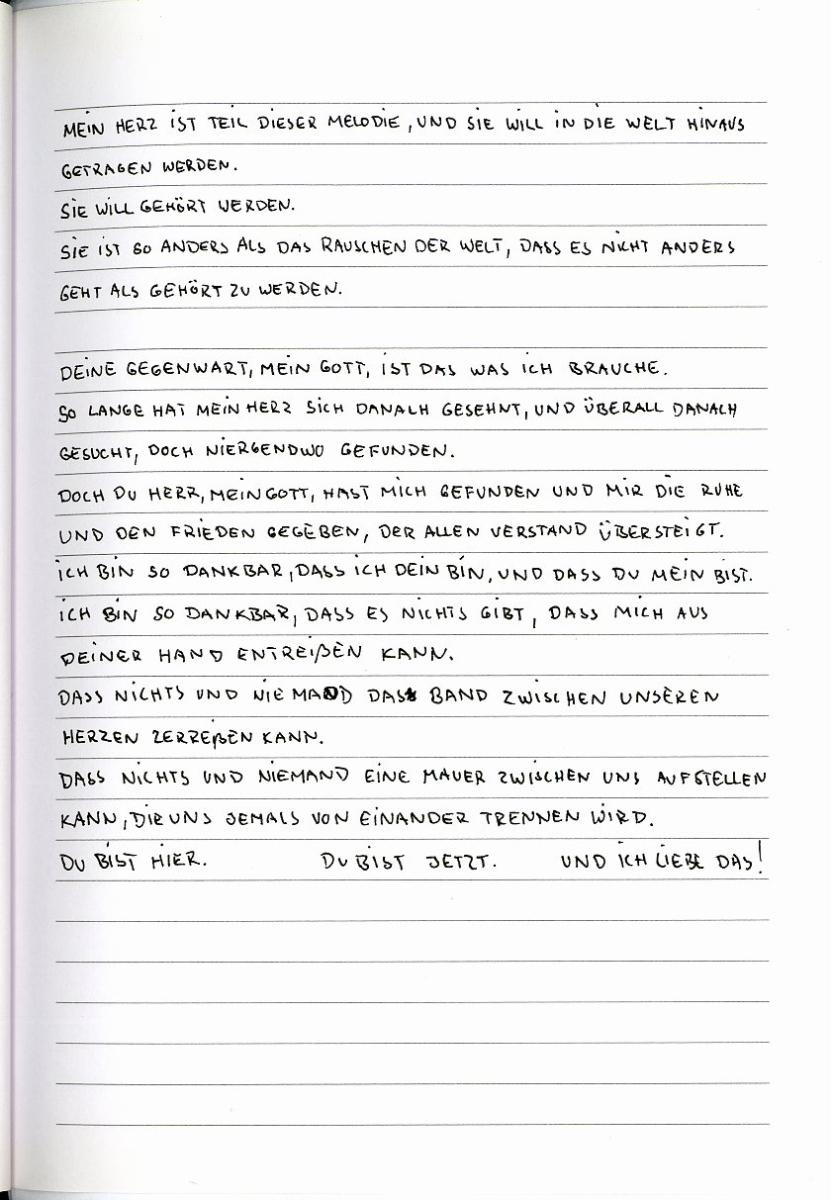 MEIN HERZ IST TEIL DIESER MELODIE, UND SIE WILL IN DIE WELT HINAUS
GETRAGEN WERDEN.
SIE WILL GEHÖRT WERDEN.
SIE IST SO ANDERS ALS DAS RAUSCHEN DER WELT, DASS ES NICHT ANDERS
GEHT ALS GEHÖRT ZU WERDEN.
DEINE GEGENWART, MEIN GOTT, IST DAS WAS ICH BRAUCHE.
SO LANGE HAT MEIN HERZ SICH DANACH GESEHNT, UND ÜBERALL DANACH
GESUCHT, DOCH NIERGENDWO GEFUNDEN.
DOCH DU HERR, MEIN GOTT, HAST MICH GEFUNDEN UND MIR DIE RUHE
UND DEN FRIEDEN GEGEBEN, DER ALLEN VERSTAND ÜBERSTEIGT.
ICH BIN SO DANKBAR, DASS ICH DEIN BIN, UND DASS DU MEIN BIST.
ICH BIN SO DANKBAR, DASS ES NICHTS GIBT, DASS MICH AUS
DEINER HAND ENTREIßEN KANN.
DASS NICHTS UND NIEMAND DAS BAND ZWISCHEN UNSEREN
HERZEN ZERREßEN KANN.
DASS NICHTS UND NIEMAND EINE MAUER ZWISCHEN UNS AUFSTELLEN
KANN, DIE UNS JEMALS VON EINANDER TRENNEN WIRD.
DU BIST HIER. DU BIST JETZT. UND ICH LIEBE DAS!